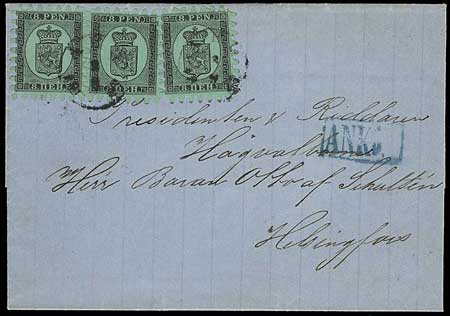 8. PEN. 8. PEN. 8. PEN.
8. ПЕН. 8. ПЕН. 8. ПЕН.
Presidenten & Riddaren
ANK
Högvälborne
Herr Baron Otto af Schultén
Helsingfors